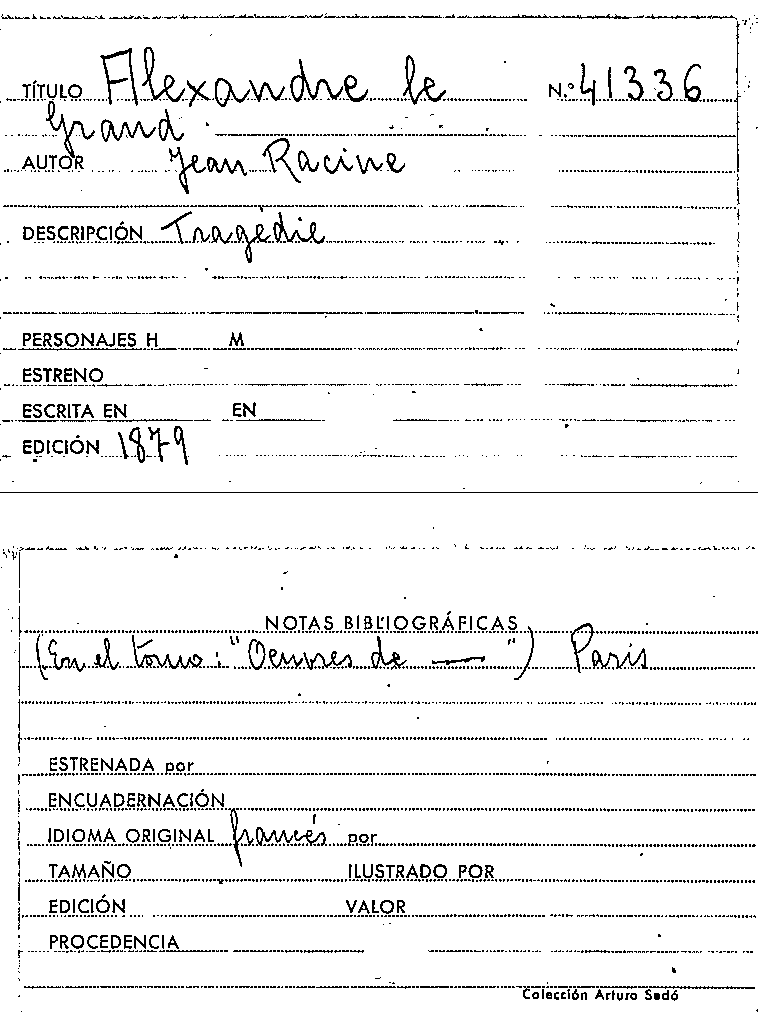 TÍTULO Alexandre le N.º 41336
Grand
AUTOR Jean Racine
DESCRIPCIÓN Tragédie
PERSONAJES H M
ESTRENO
ESCRITA EN EN
EDICIÓN 1879
NOTAS BIBLIOGRÁFICAS
(En el tomo: "Oeuvres de —") Paris
ESTRENADA por
ENCUADERNACIÓN
IDIOMA ORIGINAL francés por
TAMAÑO ILUSTRADO POR
EDICIÓN VALOR
PROCEDENCIA
Colección Arturo Sedó